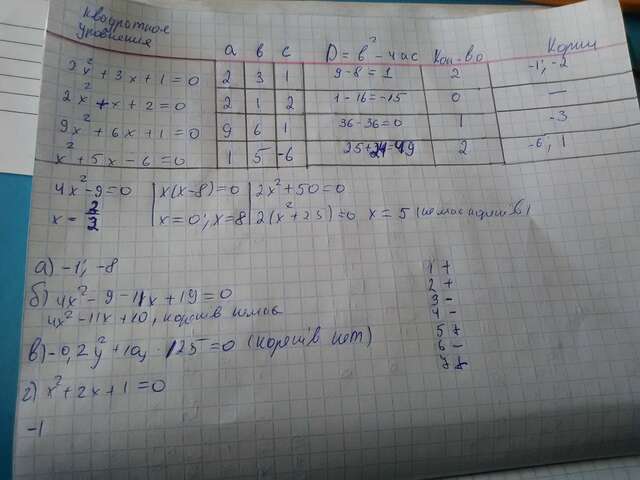 квадратное уравнения
a b c D = b² - 4ac Кол-во Корни
2x² + 3x + 1 = 0 2 3 1 9 - 8 = 1 2 -1; -2
2x² + x + 2 = 0 2 1 2 1 - 16 = -15 0 —
9x² + 6x + 1 = 0 9 6 1 36 - 36 = 0 1 -3
x² + 5x - 6 = 0 1 5 -6 25 + 24 = 49 2 -6; 1
4x² - 9 = 0 | x(x-8) = 0 | 2x² + 50 = 0
x = 2/3 | x = 0; x = 8 | 2(x² + 25) = 0 x = 5 (немає коренів)
а) -1; -8
б) 4x² - 9 - 11x + 19 = 0
4x² - 11x + 10, коренів немає
в) -0,2y² + 10y - 125 = 0 (коренів нет)
г) x² + 2x + 1 = 0
-1
1 +
2 +
3 -
4 -
5 +
6 -
7 +